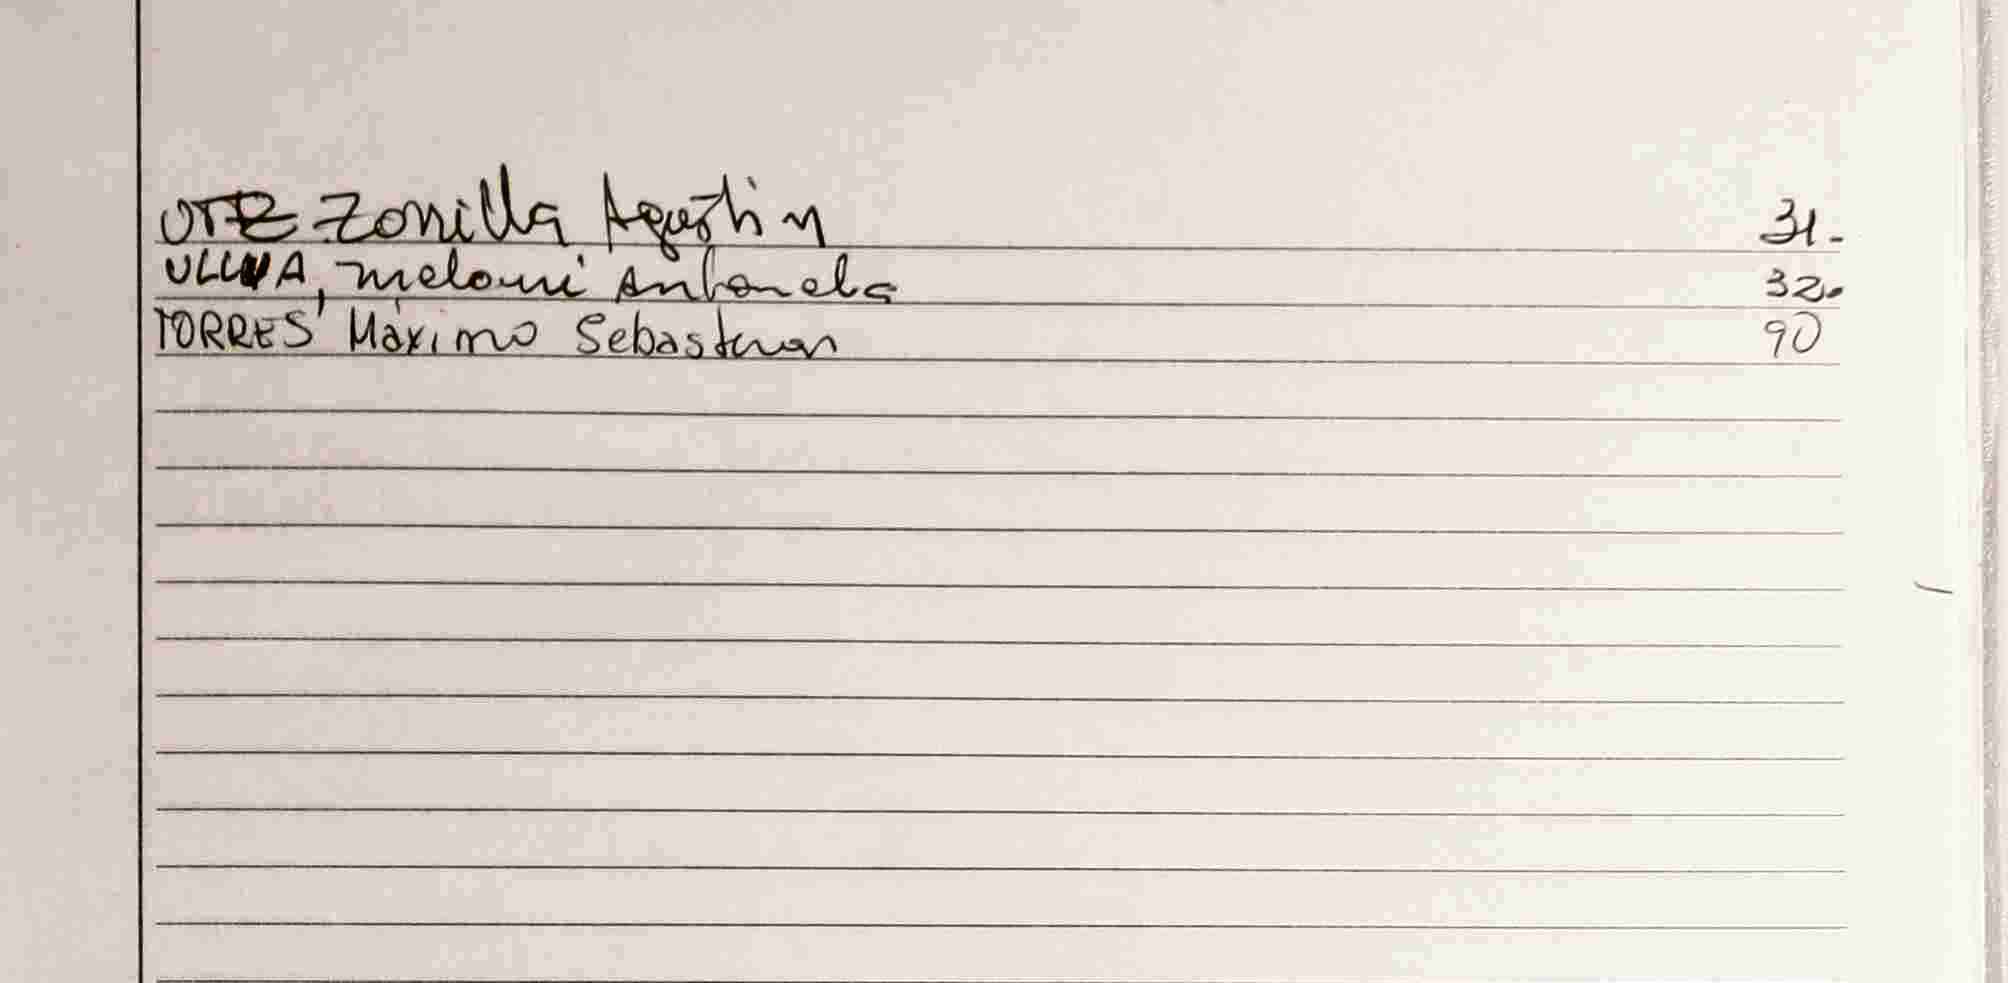 UTZ Zorrilla Agustin 31.
ULLUA, Melani Antonela 32.
TORRES, Máximo Sebastian 90